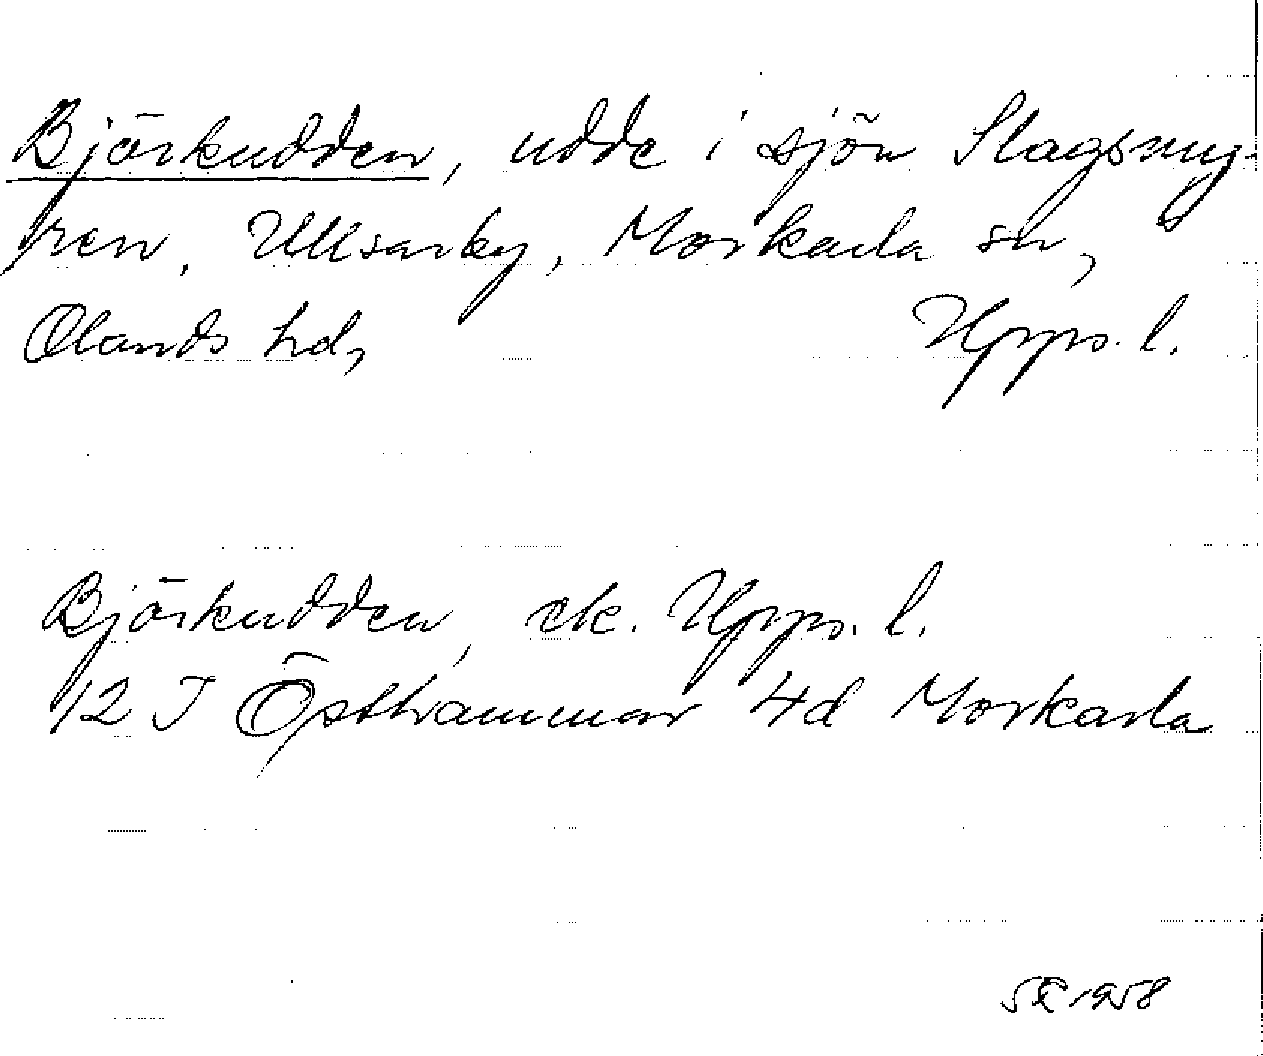 Björkudden, udde i sjön Slagsmy-
ren, Ullsarby, Morkarla sn,
Olands hd, Upps. l.
Björkudden, ek. Upps. l.
12 I Östhammar 4d Morkarla
1958